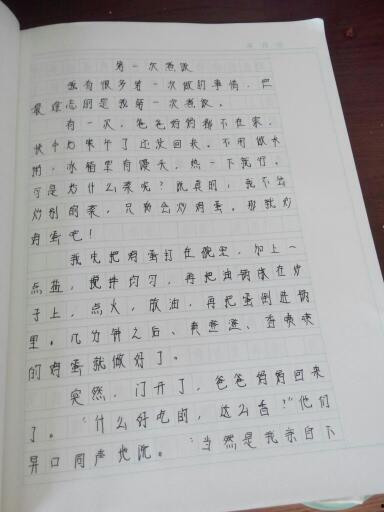 第一次煮饭
我有很多第一次做的事情,但
最难忘的是我第一次煮饭。
有一次,爸爸妈妈都不在家,
快中午了还没回来。不用做米
饭,冰箱里有馒头,热一下就行。
可是炒什么菜呢?说真的,我不会
炒别的菜,只能炒鸡蛋。那就炒
鸡蛋吧!
我先把鸡蛋打在碗里,加上一
点盐,搅拌均匀,再把油锅放在炉
子上,点火,放油,再把蛋倒进锅
里。几分钟之后、黄澄澄、香喷喷
的鸡蛋就做好了。
突然,门开了,爸爸妈妈回来
了。“什么好吃的,这么香?”他们
异口同声地说。“当然是我亲自下